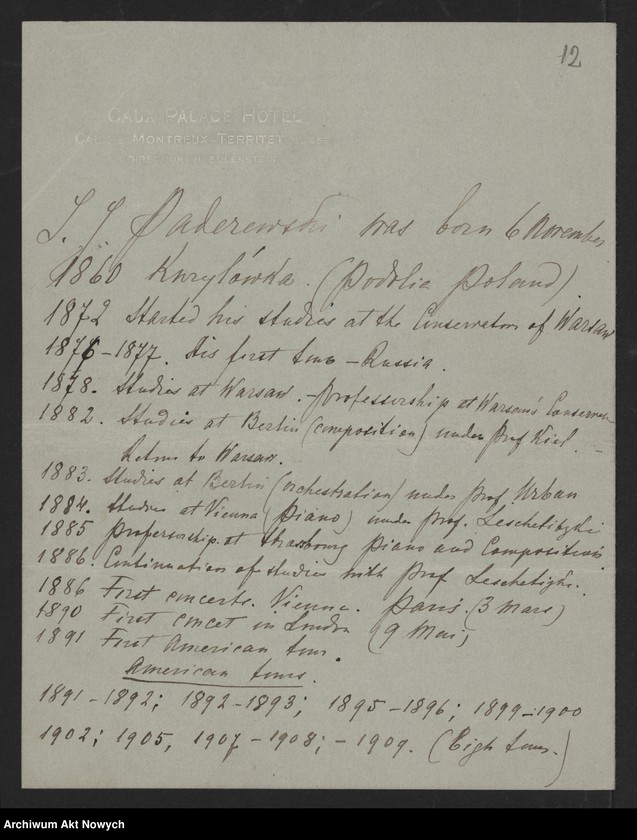 12
CAUX PALACE HOTEL
CAUX s. MONTREUX-TERRITET SUISSE
DIRECTION
I. J. Paderewski was born 6 November
1860 Kurylówka. (Podolia Poland)
1872 Started his studies at the Conservatory of Warsaw
1876-1877. His first tour - Russia.
1878. Studies at Warsaw. - professorship at Warsaw's Conservat
1882. Studies at Berlin (composition) under Prof Kiel. -
Return to Warsaw.
1883. Studies at Berlin (orchestration) under Prof. Urban
1884. Studies at Vienna (piano) under Prof. Leschetitzki
1885 Professorship at Strasbourg piano and Composition
1886. Continuation of studies with Prof Leschetizki.
1886 First concerts. Vienna. Paris. (3 Mars)
1890 First concet in London (9 Mai)
1891 First American tour.
American tours.
1891-1892; 1892-1893; 1895-1896; 1899-1900
1902; 1905, 1907-1908; - 1909. (Eigh tours.)
Archiwum Akt Nowych